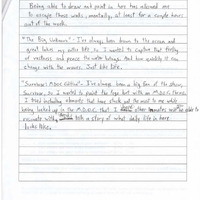 Being able to draw and paint in here has allowed me
to escape these walls, mentally, at least for a couple hours
out of the week.
"The Big Unknown" - I've always been drawn to the ocean and
great lakes my entire life, so I wanted to capture that feeling
of vastness and peace the water brings. And how quickly it can
change with the waves. Just like life.
"Survivor: M.D.O.C. Edition" - I've always been a big fan of the show,
Survivor, so I wanted to paint the logo but with an M.D.O.C. theme.
I tried including elements that have stuck out the most to me while
being locked up in the M.D.O.C. that I other inmates will be able to
resonate with tell a story of what daily life in here
looks like.